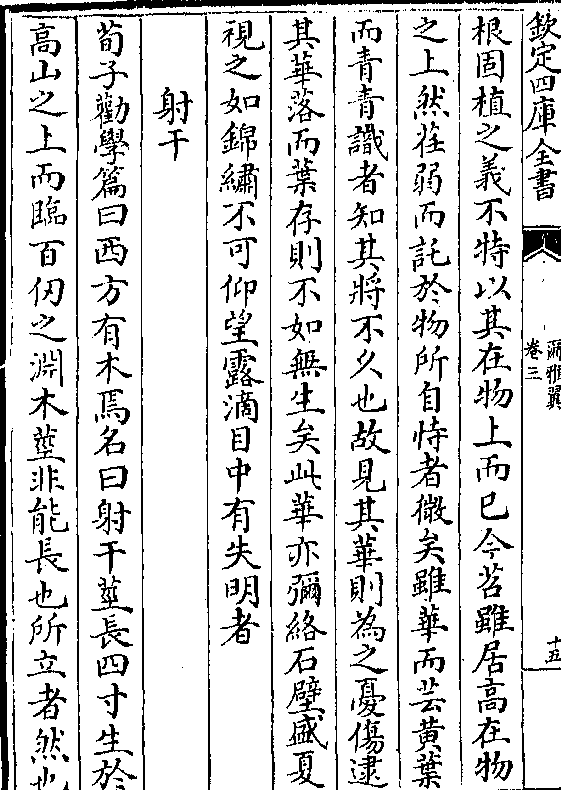 欽定四庫全書
爾雅翼
卷三
十五
根固植之義不特以其在物上而已今苕雖居高在物
之上然莖弱而託於物所自恃者微矣雖華而芸黄葉
而青青識者知其將不久也故見其華則為之憂傷逮
其華落而葉存則不如無生矣此華亦彌絡石壁盛夏
視之如錦繡不可仰望露滴目中有失明者
射干
荀子勸學篇曰西方有木焉名曰射干莖長四寸生於
高山之上而臨百仭之淵木莖非能長也所立者然也